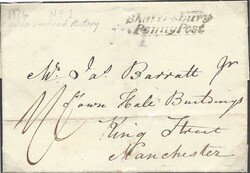 Shaftesbury
Penny Post
Mr. Jas. Barratt Jr
Town Hale Buildings
King Street
Manchester